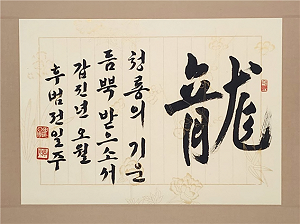 龍
청룡의 기운
듬뿍 받으소서
갑진년 오월
후범 전일주